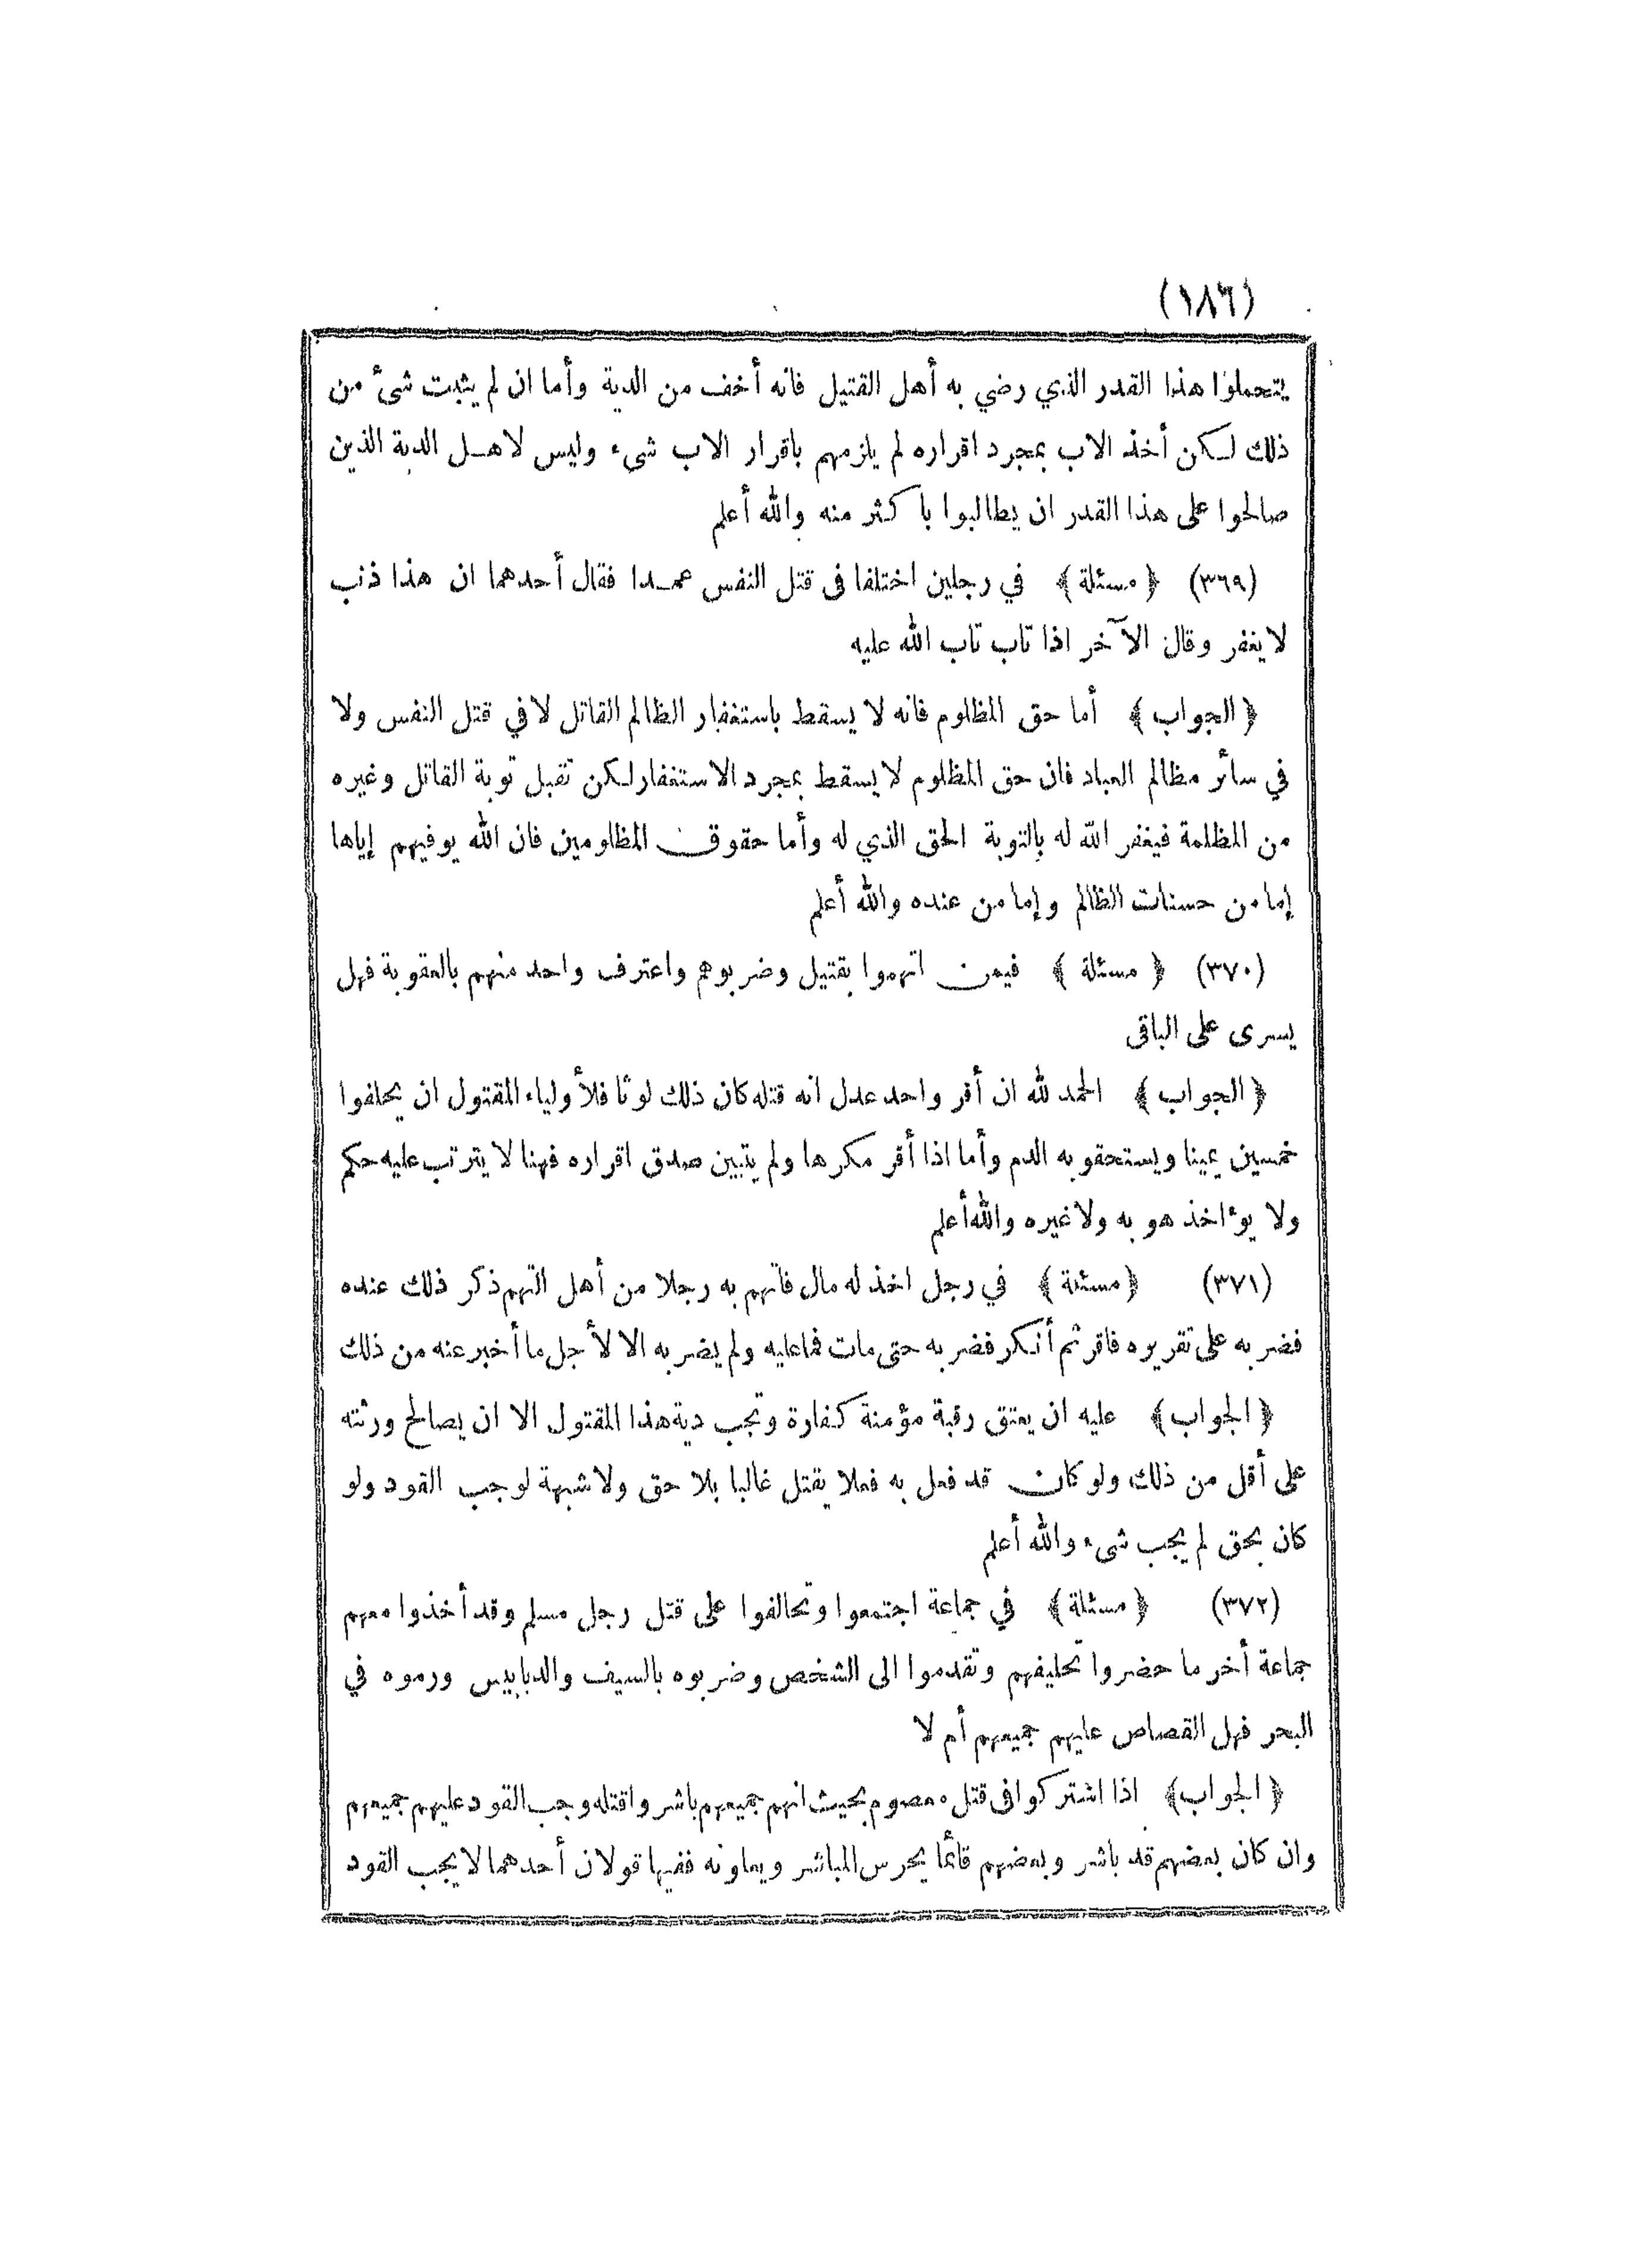 (١٨٦)
يتحملوا هذا القدر الذي رضي به أهل القتيل فانه أخف من الدية وأما ان لم يثبت شئ من
ذلك لكن أخذ الاب بمجرد اقراره لم يلزمهم باقرار الاب شيء وليس لاهل الدية الذين
صالحوا على هذا القدر ان يطالبوا باكثر منه والله أعلم
(٣٦٩) ﴿ مسئلة ﴾ في رجلين اختلفا فى قتل النفس عمدا فقال أحدهما ان هذا ذنب
لا يغفر وقال الآخر اذا تاب تاب الله عليه
﴿ الجواب ﴾ أما حق المظلوم فانه لا يسقط باستغفار الظالم القاتل لا في قتل النفس ولا
في سائر مظالم العباد فان حق المظلوم لا يسقط بمجرد الاستغفار لكن تقبل توبة القاتل وغيره
من الظلمة فيغفر الله له بالتوبة الحق الذي له وأما حقوق المظلومين فان الله يوفيهم إياها
إما من حسنات الظالم وإما من عنده والله أعلم
(٣٧٠) ﴿ مسئلة ﴾ فيمن اتهموا بقتيل وضربوهم واعترف واحد منهم بالعقوبة فهل
يسرى على الباقى
﴿ الجواب ﴾ الحمد لله ان أقر واحد عدل انه قتله كان ذلك لوثا فلأولياء المقتول ان يحلفوا
خمسين يمينا ويستحقوبه الدم وأما اذا أقر مكرها ولم يتبين صدق اقراره فهنا لا يترتب عليه حكم
ولا يوءاخذ هو به ولا غيره والله أعلم
(٣٧١) ﴿ مسئلة ﴾ في رجل اخذ له مال فاتهم به رجلا من أهل التهم ذكر ذلك عنده
فضربه على تقريره فاقر ثم أنكر فضربه حتى مات فماعليه ولم يضربه الا لأجل ما أخبر عنه من ذلك
﴿ الجواب ﴾ عليه ان يعتق رقبة مؤمنة كفارة وتجب دية هذا المقتول الا ان يصالح ورثته
على أقل من ذلك ولو كان قد فعل به فعلا يقتل غالبا بلا حق ولا شبهة لوجب القود ولو
كان بحق لم يجب شيء والله أعلم
(٣٧٢) ﴿ مسئلة ﴾ في جماعة اجتمعوا وتحالفوا على قتل رجل مسلم وقد أخذوا معهم
جماعة أخر ما حضروا تحليفهم وتقدموا الى الشخص وضربوه بالسيف والدبابيس ورموه في
البحر فهل القصاص عليهم جميعهم أم لا
﴿ الجواب ﴾ اذا اشتركوا فى قتل معصوم بحيث انهم جميعهم باشروا قتله وجب القود عليهم جميعهم
وان كان بعضهم قد باشر وبعضهم قائما يحرس المباشر ويعاونه ففيها قولان أحدهما لا يجب القود